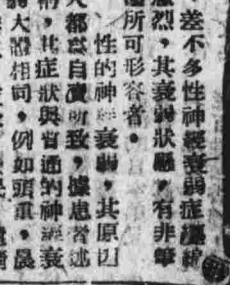 差不多性神經衰弱症
烈，其衰弱狀態，有非筆
所可形容者。
性的神經衰弱，其原因
大都為自瀆所致，據患者述
，其症狀與普通的神經衰
弱大體相同，例如頭重，晨